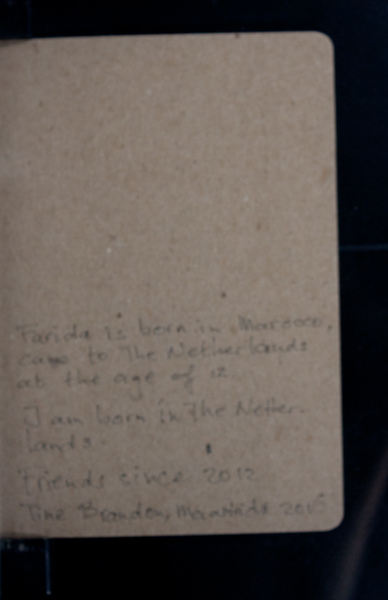 Farida is born in Morocco,
came to The Netherlands
at the age of 12
I am born in The Nether-
lands.
Friends since 2012
Tine